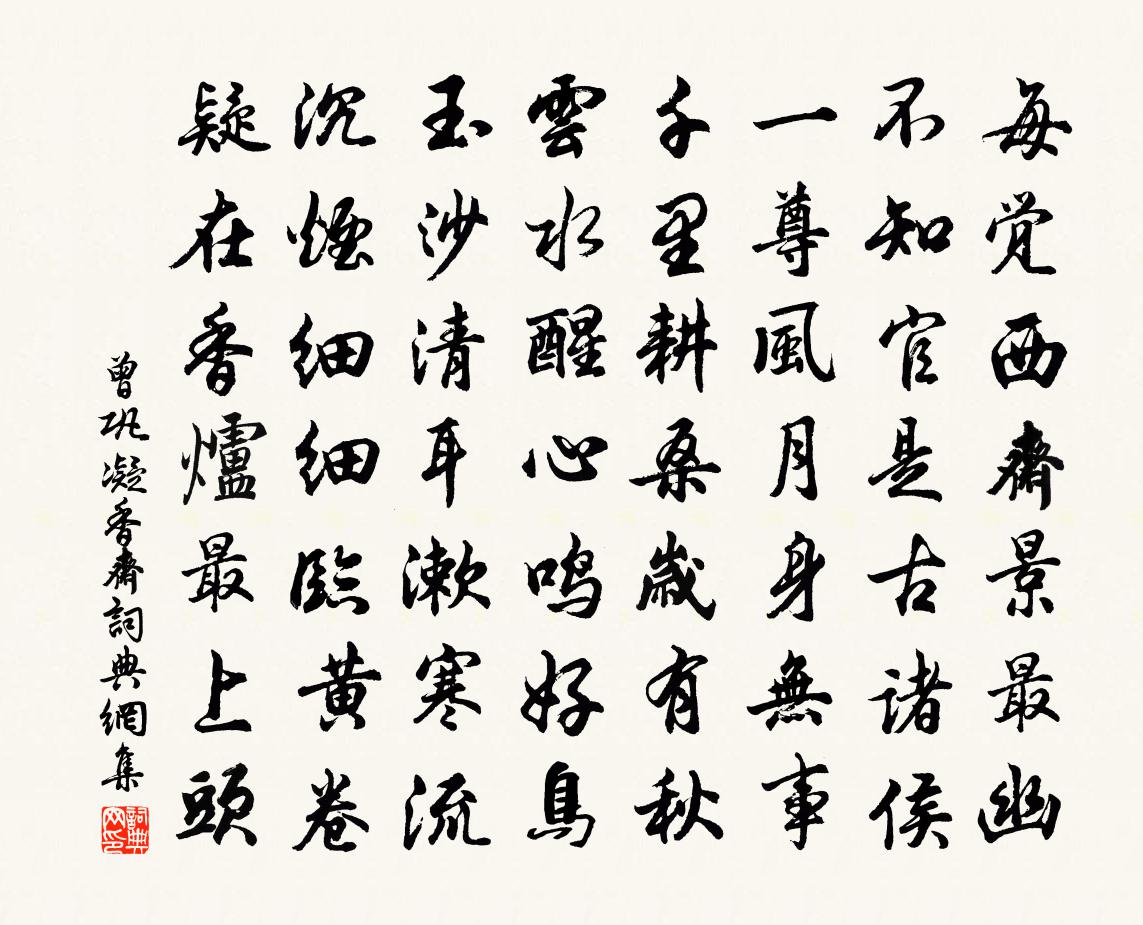 每觉西齋景最幽
不知官是古諸侯
一尊風月身無事
千里耕桑歲有秋
雲水醒心鸣好鳥
玉沙清耳漱寒流
沉煙细细臨黄卷
疑在香爐最上頭
曾巩凝香齋詞典網集
詞典网印